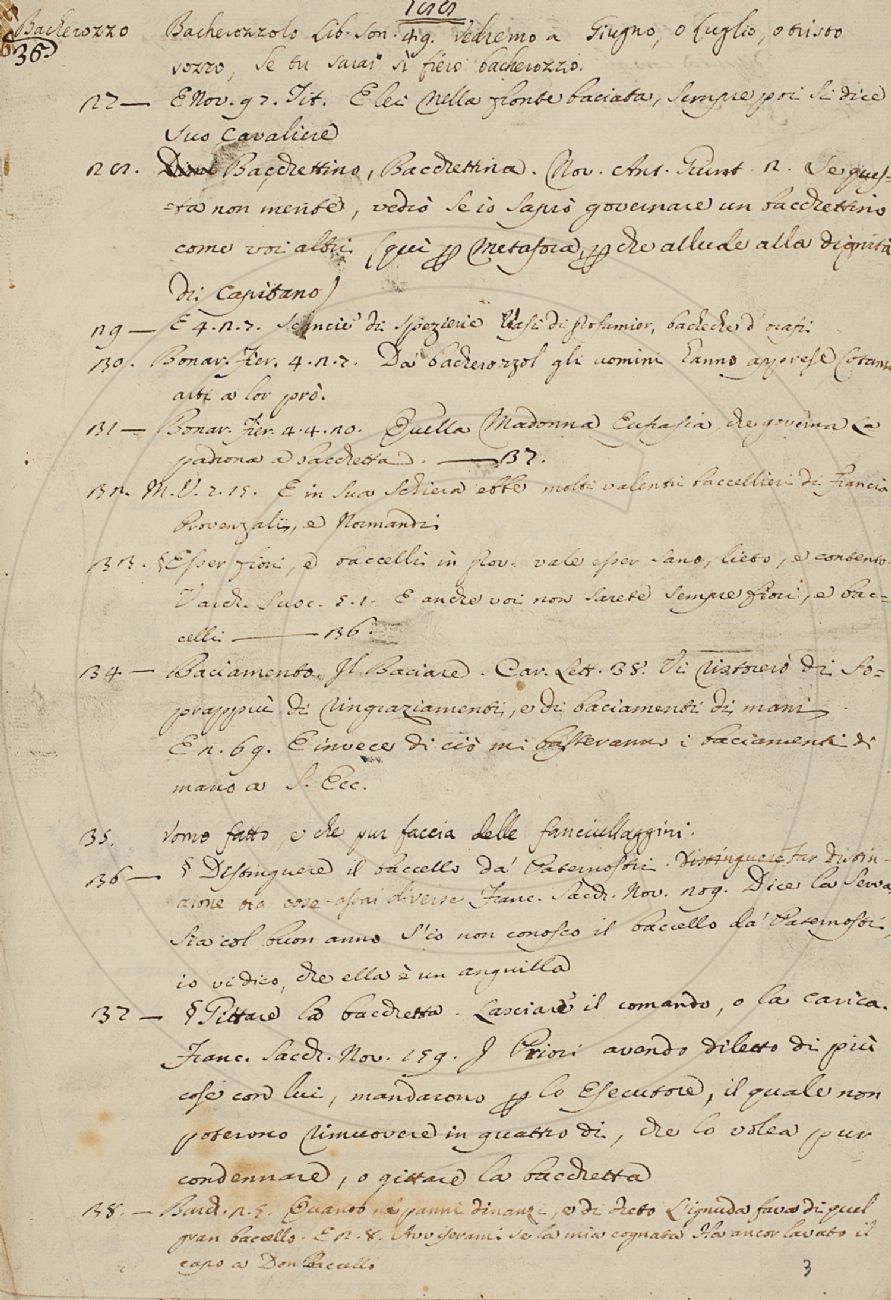 Bacherozzo Bacherozzolo Lib. Son. 49. Vedremo a Giugno, o Luglio, o tristo
36 sozzo, se tu sarai sì fiero bacherozzo.
27 — E Nov. 97. Tit. E lei nella fronte baciata, sempre poi si dice
suo Cavaliere
Bacchettino, Bacchettina. Nov. Ant. Giunt. 2. Se ques-
-ta non mente, vedrò se io saprò governare un bacchettino
come voi altri (qui p metafora, p che allude alla dignità
di Capitano)
29 — E 4. 2. 7. di spezierie Vasi di profumier, bacheche d' orafi
130. Bonar. Fier. 4. 2. 7. Da bacherozzol gli uomini hanno apprese
arti a lor prò.
131 — Bonar. Fier. 4. 4. 20. Quella Madonna Eufrasia che governa la
padrona a bacchetta. — 137.
132. M. V. 2. 15. E in sua schiera ebbe molti valenti baccellieri di Francia
Provenzali, e Normandi
133. § Esser fiori, e baccelli in prov. vale esser sano, lieto, e contento.
Varch. Suoc. 5. 1. E anche voi non sarete sempre fiori, e bac-
celli — 136.
134 — Baciamento. Il Baciare. Car. Lett. 38. Vi ristorerò di so-
prappiù di ringraziamenti, e di baciamenti di mani
E 2. 69. E invece di ciò mi basteranno i baciamenti di
mano a S. Ecc.
35. Uomo fatto, e che pur faccia delle fanciullaggini.
136 — § Distinguere il baccello da' Paternostri. distinguere Far distin-
zione tra cose assai diverse Franc. Sacch. Nov. 209. Dice la Serva
Sia col buon anno s'io non conosco il baccello da' Paternostri,
io vi dico, che ella è un anguilla
37 — § Gittare la bacchetta. Lasciare il comando, o la carica.
Franc. Sacch. Nov. 159. I Priori avendo diletto di più
cose con lui, mandarono p lo Esecutore, il quale non
poterono rimuovere in quattro dì, che lo volea pur
condennare, o gittare la bacchetta
38. — Burch. 2. 5. Quando ne' panni dinanzi, e di dreto L'ignuda fava di quel
gran baccello. E 2. 8. Avviserami se la mia cognata Ha ancor lavato il
capo a Don Baccello
3